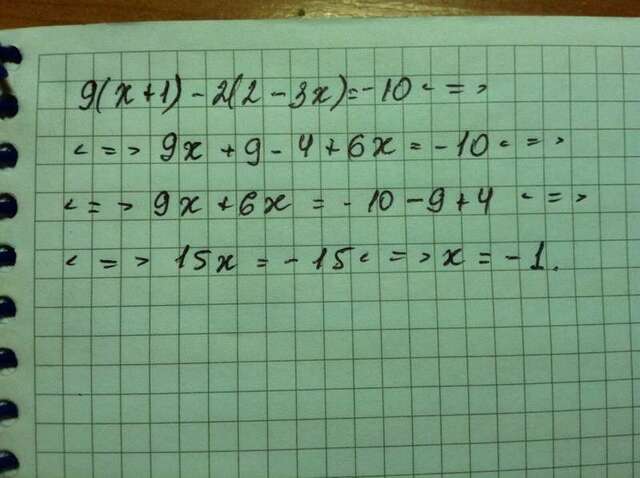 9(x+1) - 2(2 - 3x) = -10 <=>
<=> 9x + 9 - 4 + 6x = -10 <=>
<=> 9x + 6x = -10 - 9 + 4 <=>
<=> 15x = -15 <=> x = -1.